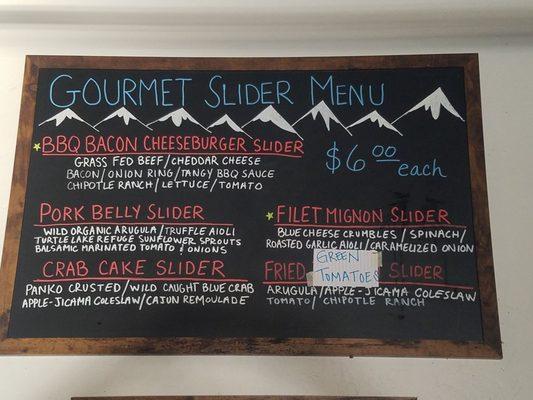 GOURMET SLIDER MENU
$6.00 each
BBQ BACON CHEESEBURGER SLIDER
GRASS FED BEEF/CHEDDAR CHEESE
BACON/ONION RING/TANGY BBQ SAUCE
CHIPOTLE RANCH/LETTUCE/TOMATO
PORK BELLY SLIDER
WILD ORGANIC ARUGULA/TRUFFLE AIOLI
TURTLE LAKE REFUGE SUNFLOWER SPROUTS
BALSAMIC MARINATED TOMATO & ONIONS
FILET MIGNON SLIDER
BLUE CHEESE CRUMBLES/SPINACH/
ROASTED GARLIC AIOLI/CARAMELIZED ONION
CRAB CAKE SLIDER
PANKO CRUSTED/WILD CAUGHT BLUE CRAB
APPLE-JICAMA COLESLAW/CAJUN REMOULADE
FRIED GREEN TOMATOES SLIDER
ARUGULA/APPLE-JICAMA COLESLAW
TOMATO/CHIPOTLE RANCH